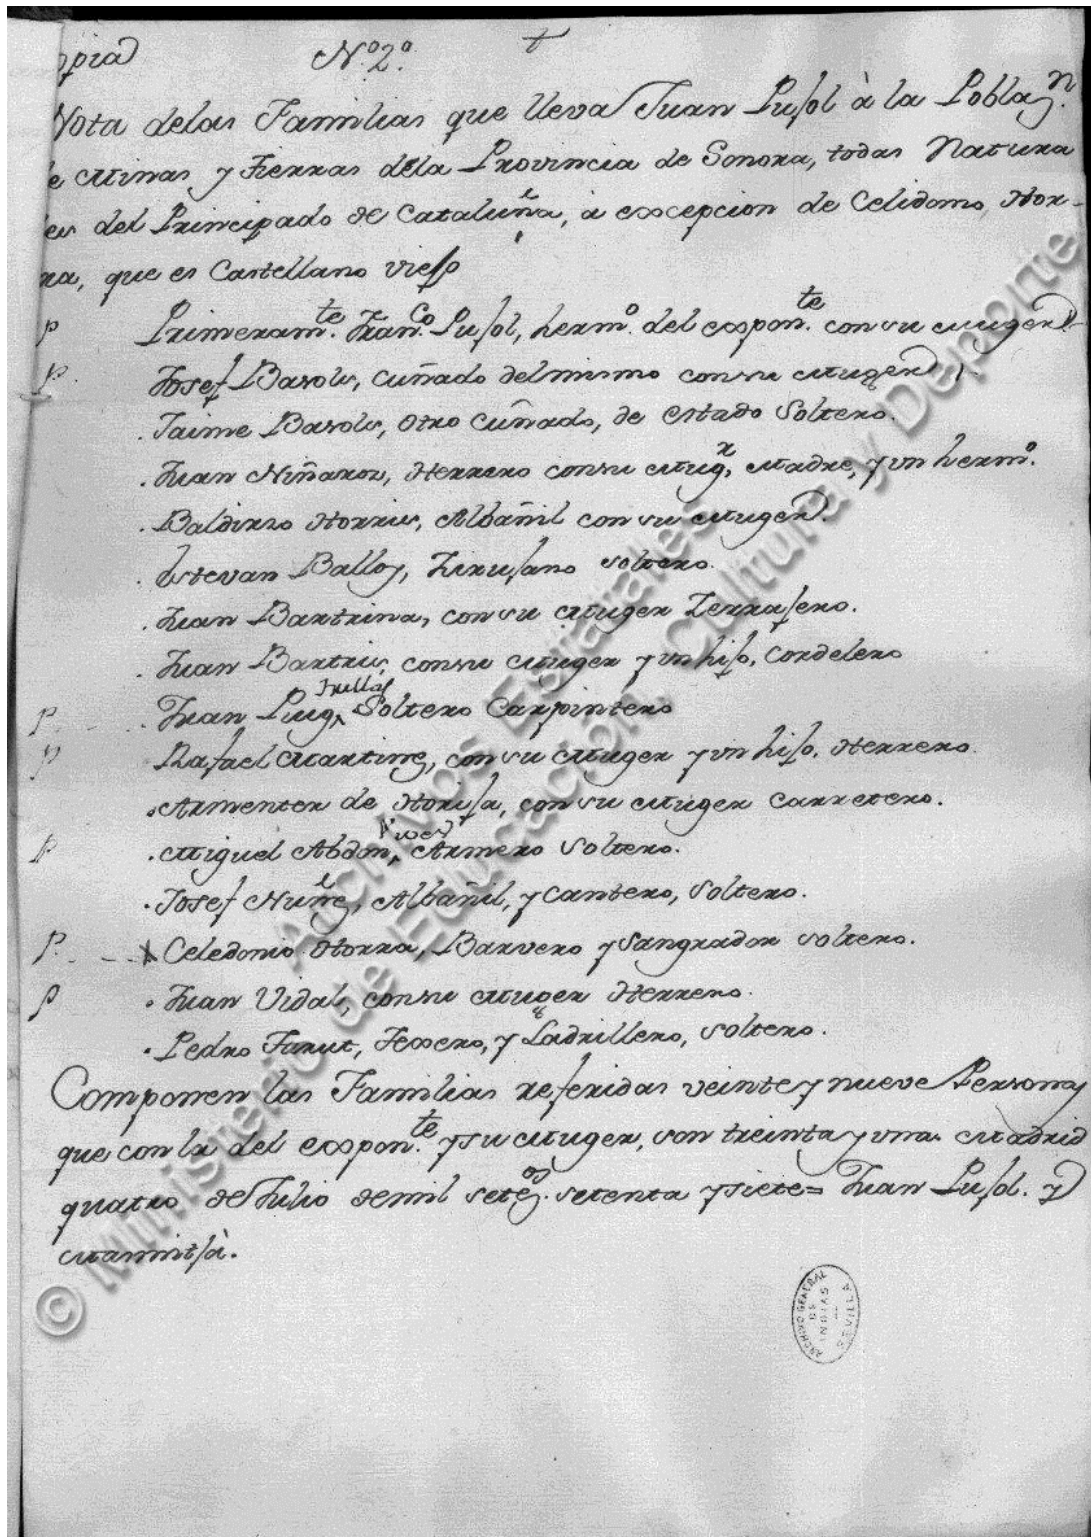 opia Nº 2º.
Nota delas Familias que lleva Juan Pujol à la Poblaz.n
e Minas y Tierras dela Provincia de Sonora, todas Natura
les del Principado de Cataluña, a excepcion de Celidonio Hor-
ra, que es Castellano viejo
P Primeram.te Fran.co Pujol, herm.o del expon.te con su Muger.
P. Josef Basols, Cuñado del mismo con su Muger.
. Jaime Basols, otro Cuñado, de estado Soltero.
. Juan Niñaros, Herrero con su Mug.r, Madre, y vn herm.o
. Baldirio Horrius, Albañil con su Muger.
. Estevan Balloy, Zirujano soltero.
. Juan Bartrina, con su Muger Zerrajero.
. Juan Bartrius, con su Muger y vn hijo, Cordelero
Trullas
P. . Juan Puig, Soltero Carpintero
P . Rafael Marting, con su Muger y vn hijo. Herrero.
. Armenter de Horija, con su Muger Carretero.
P . Miguel Abdon, Armero Soltero.
. Josef Nuñez, Albañil, y Cantero, Soltero.
P. Celedonio Horra, Barvero y Sangrador soltero.
P . Juan Vidal, con su Muger Herrero.
. Pedro Farut, Texero, y Ladrillero, soltero.
Componen las Familias referidas veinte y nueve Personas
que con la del expon.te y su Muger, son treinta y vna. Madrid
quatro de Julio de mil setez.os setenta y siete= Juan Pujol. y
Maminjà.
ARCHIVO GENERAL DE INDIAS SEVILLA
© Ministerio de Educación, Cultura y Deporte
Archivos Estatales